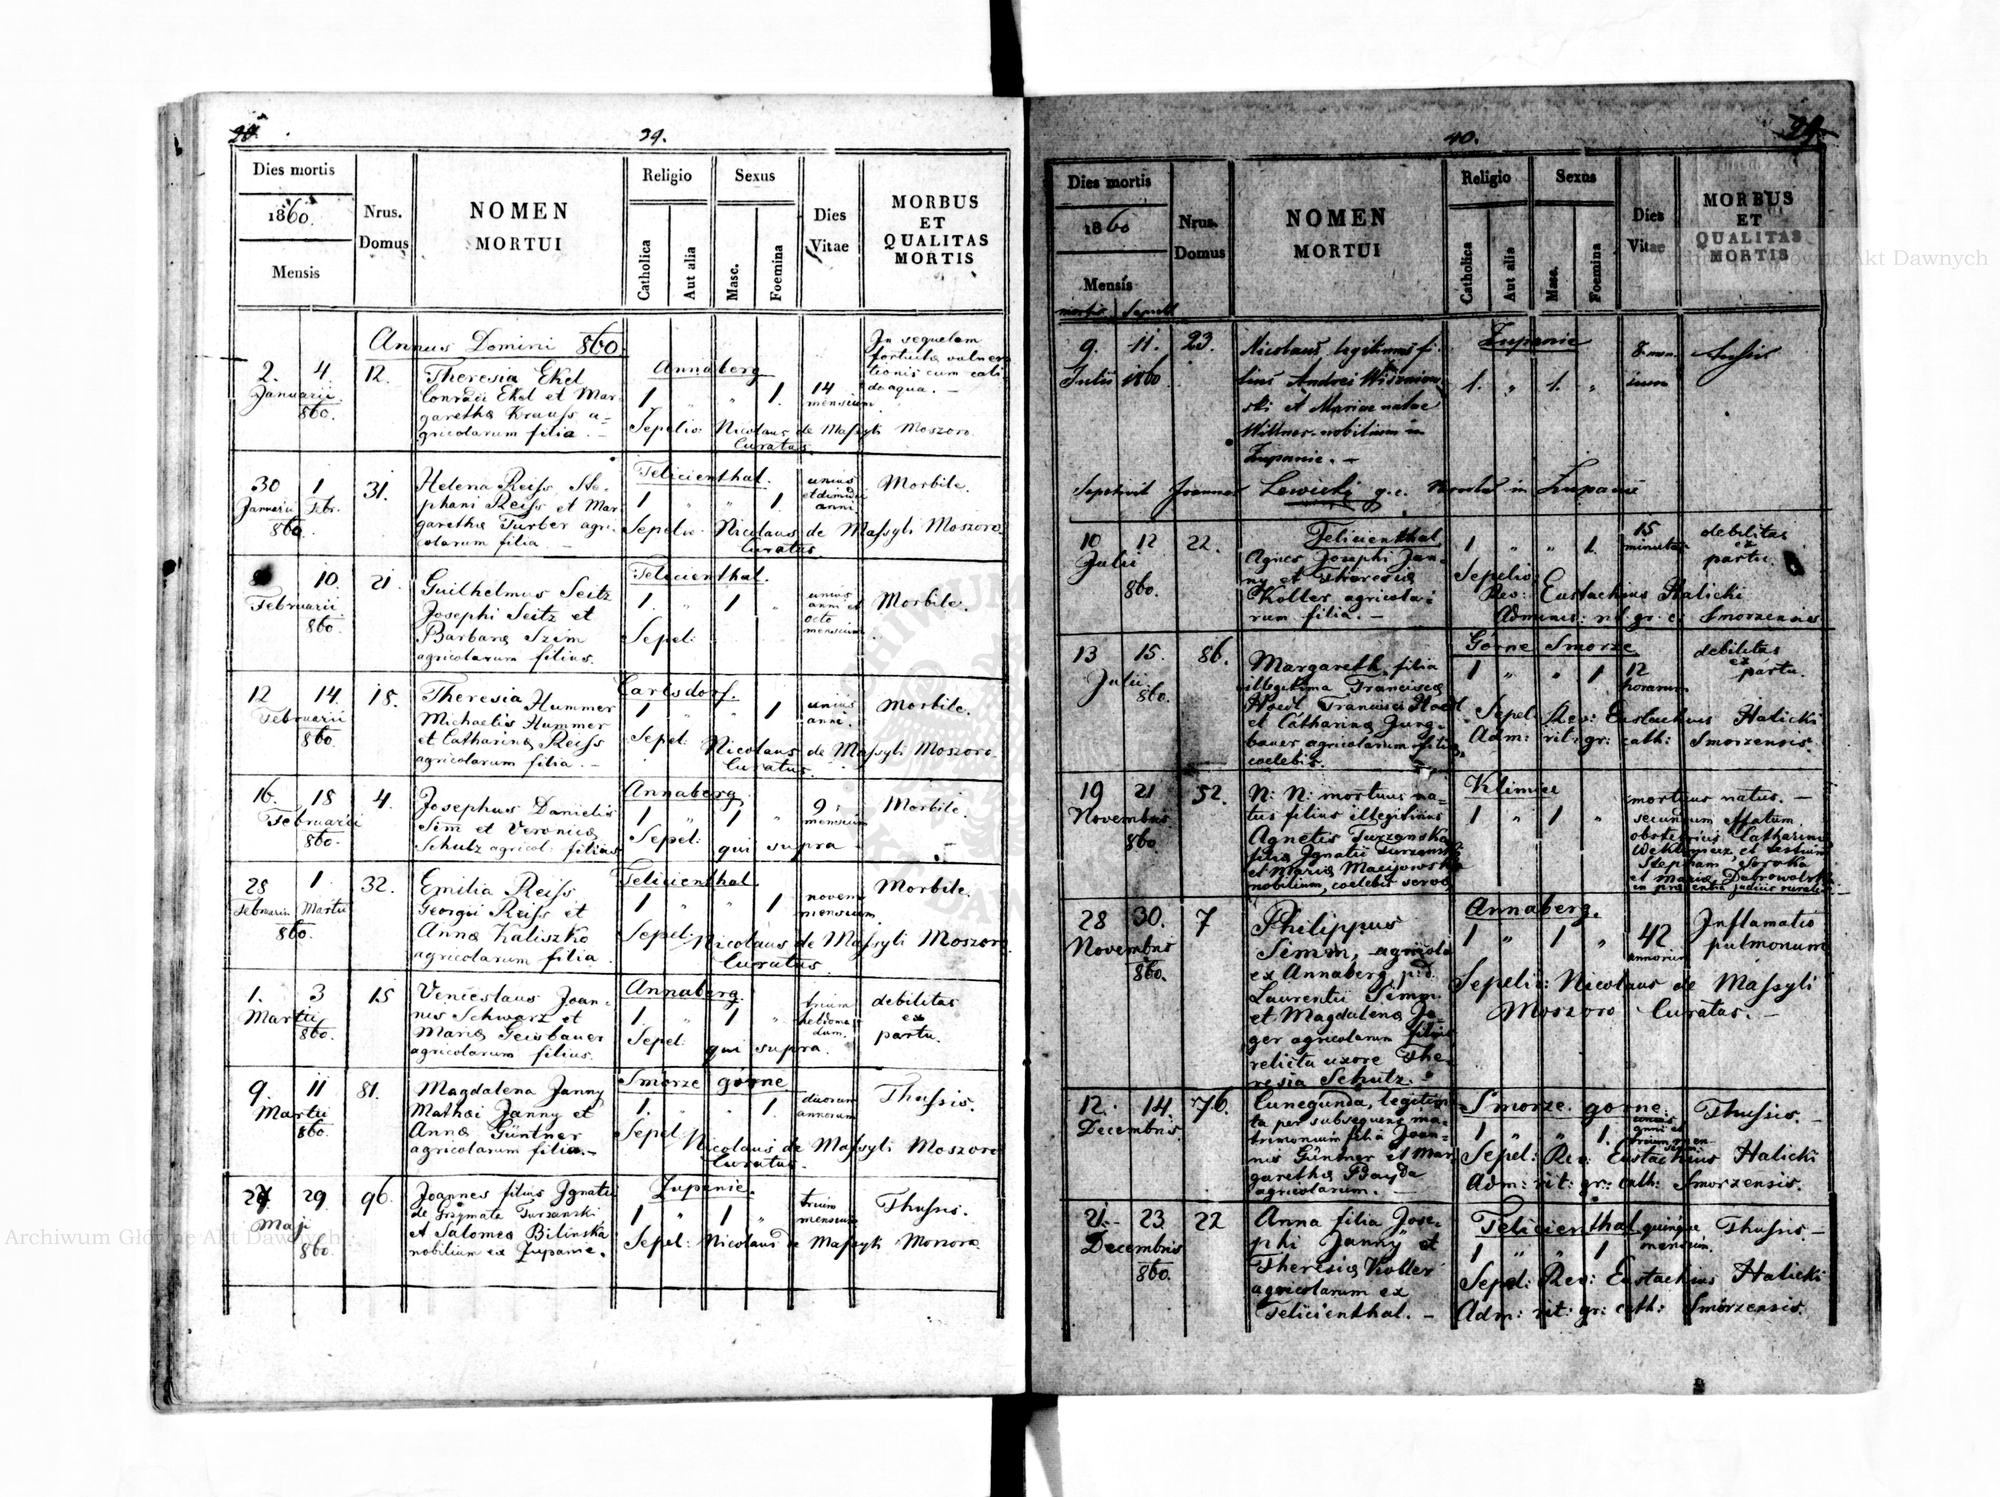 39.
Dies mortis
1860.
Mensis
Nrus.
Domus
NOMEN
MORTUI
Religio
Catholica
Aut alia
Sexus
Masc.
Foemina
Dies
Vitae
MORBUS
ET
QUALITAS
MORTIS
Annus Domini 860.
2. 4
Januarii
860.
12.
Theresia Ekel
Conradi Ekel et Mar-
garetha Krauss a-
gricolarum filia. -
Annaberg
1 " " 1.
14
mensium
In sequelam
de aqua. -
Sepelivi Nicolaus de Massyli Moszoro
Curatus.
30 1
Januarii Febr.
860
31.
Helena Reiss Ste-
phani Reiss et Mar
garetha Furber agri-
colarum filia -
Felicienthal.
1 " " 1
unius
et dimidii
anni.
Morbile.
Sepelivi Nicolaus de Massyli Moszoro
Curatus
10.
Februarii
860.
21.
Guilhelmus Seitz
Josephi Seitz et
Barbara Szem
agricolarum filius.
Felicienthal.
1. " 1 "
unius
anni et
octo
mensium
Morbile.
Sepel:
12 14.
Februarii
860.
18.
Theresia Hummer
Michaelis Hummer
et Catharina Reiss
agricolarum filia. -
Carlsdorf.
1 " " 1
unius
anni.
Morbile.
Sepel: Nicolaus de Massyli Moszoro
Curatus.
16. 18
Februarii
860.
4.
Josephus Danielis
Sim et Veronica
Schutz agricol: filius
Annaberg
1 " 1 "
9
mensium
Morbile.
Sepel: qui supra
28 1.
Februarii Martii
860.
32.
Emilia Reiss
Georgii Reiss et
Anna Kaliszko
agricolarum filia.
Felicienthal
1 " " 1
novem
mensium
Morbile.
Sepel: Nicolaus de Massyli Moszoro
Curatus.
1. 3
Martii
860.
15
Venceslaus Joan-
nis Schwarz et
Maria Geisbauer
agricolarum filius.
Annaberg.
1. " 1 "
trium
hebdoma-
dum.
debilitas
ex
partu.
Sepel: qui supra.
9. 11
Martii
860.
81.
Magdalena Janny
Mathai Janny et
Anna Güntner
agricolarum filia. -
Smorze górne
1. " " 1.
duorum
annorum
Thussis.
Sepel: Nicolaus de Massyli Moszoro
Curatus.
27 29
Maji
860.
96.
Joannes filius Ignatii
de Grzymata Turzanski
et Salomea Bilinska
nobilium ex Zupanie.
Zupanie.
1 " 1 "
trium
mensium
Thussis.
Sepel: Nicolaus de Massyli Moszoro
40.
Dies mortis
1860
Mensis
mortis Sepult
Nrus.
Domus
NOMEN
MORTUI
Religio
Catholica
Aut alia
Sexus
Masc.
Foemina
Dies
Vitae
MORBUS
ET
QUALITAS
MORTIS
9. 11.
Julii 1860
23.
Nicolaus legitimus fi-
lius Andrei Wiszniow-
ski et Mariae natae
Wittner nobilium in
Zupanie. -
Zupanie
1. " 1. "
8 men
sium
tussis
Sepelivit Joannes Lewicki g. c. Parochus in Zupanie
10 12
Julii
860.
22.
Felicienthal
Agnes Josephi Jan-
ny et Theresia
Kolter agricola-
rum filia. -
1 " " 1.
15
minutas
debilitas
ex
partu.
Sepeliv:
Rev: Eustachius Halicki
Adminis: rit. gr. c. Smorzensis
13 15.
Julii
860.
86.
Margareth. filia
illegitima Francisca
Hoedl Francisci Hoedl
et Catharina Jung-
bauer agricolarum filia
coelebis.
Górne Smorze
1 " " 1
12
horarum
debilitas
ex
partu.
Sepel: Rev: Eustachius Halicki
Adm: rit: gr: cath: Smorzensis.
19 21
Novembris
860
52.
N: N: mortuus na-
tus filius illegitimus
Agnetis Turzanska
filia Ignatii Turzanski
et Maria Macijowska
nobilium, coelebis servae
Klimiec
1 " 1 "
mortuus natus. -
secundum effatum
obstetricis Catharina
et testium
Stephani Soroka
et Maria Dabrowolska
in praesentia judicis ruralis
28 30.
Novembris
860.
7
Philippus
Simm, agricola
ex Annaberg p.d.
Laurentii Simm
et Magdalena Ja-
ger agricolarum filius
relicta uxore The-
resia Schutz.
Annaberg.
1 " 1 "
42.
annorum
Inflamatio
pulmonum
Sepeliv: Nicolaus de Massyli
Moszoro Curatus. -
12. 14.
Decembris.
76.
Cunegunda, legitima-
ta per subsequens ma-
trimonium filia Joan-
nis Güntner et Mar
garetha Bayda
agricolarum. -
Smorze górne.
1 " " 1.
unius
anni et
trium men
sium
Thussis. -
Sepel: Rev: Eustachius Halicki
Adm: rit: gr: cath: Smorzensis.
21. 23
Decembris
860.
22
Anna filia Jose-
phi Janny et
Theresia Kolter
agricolarum ex
Felicienthal. -
Felicienthal
1 " " 1
quinque
mensium.
Thussis -
Sepel: Rev: Eustachius Halicki
Adm: rit: gr: cath: Smorzensis.
Archiwum Główne Akt Dawnych
Archiwum Główne Akt Dawnych